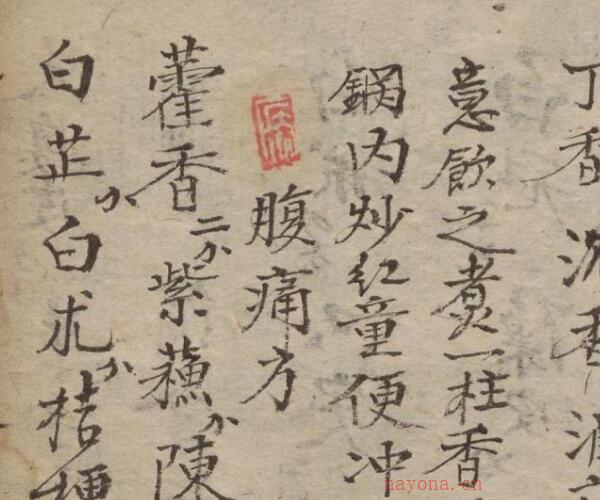 丁香 沉香
意飲之煮一柱香
鍋内炒紅童便冲
腹痛方
藿香二分紫蘓分陳
白芷分白朮分桔梗
nayona.cn